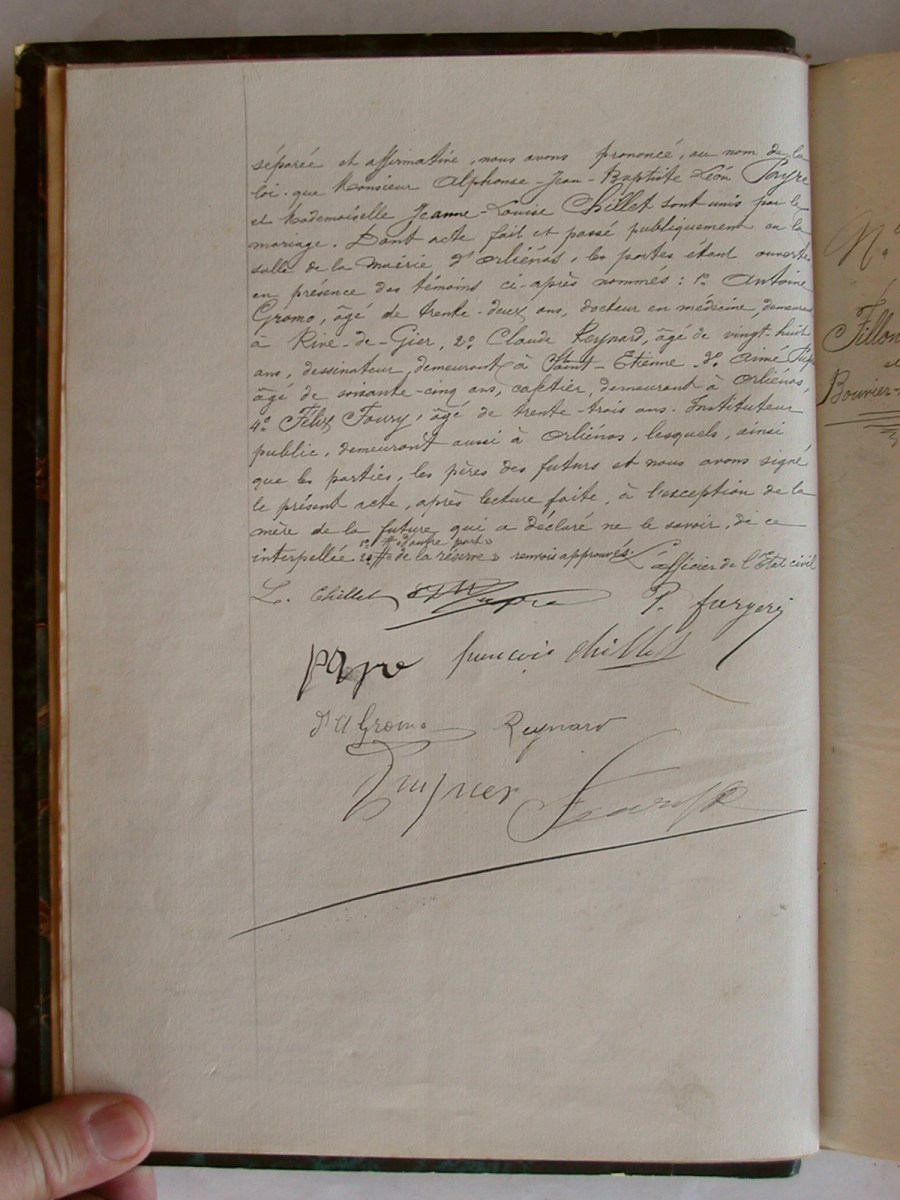 séparée et affirmative, nous avons prononcé, au nom de la
loi que Monsieur Alphonse-Jean-Baptiste Léon Payre
et Mademoiselle Jeanne-Louise Chillet sont unis par le
mariage. Dont acte fait et passé publiquement en la
salle de la mairie d'Orliénas, les portes étant ouvertes
en présence des témoins ci-après nommés : 1º Antoine
Gromo, âgé de trente-deux ans, docteur en médecine, demeurant
à Rive-de-Gier, 2º Claude Reynard, âgé de vingt-huit
ans, dessinateur, demeurant à Saint-Etienne, 3º Aimé
âgé de soixante-cinq ans, cafetier, demeurant à Orliénas,
4º Félix Fourry, âgé de trente-trois ans. Instituteur
public, demeurant aussi à Orliénas, lesquels, ainsi
que les parties, les pères des futurs et nous avons signé
le présent acte, après lecture faite, à l'exception de la
mère de la future qui a déclaré ne le savoir, de ce
1º # d'autre part
interpellée 2º # de la réserve renvois approuvés. L'officier de l'Etat civil
L. Chillet Payre
Payre françois Chillet
Dr A Gromo Reynard